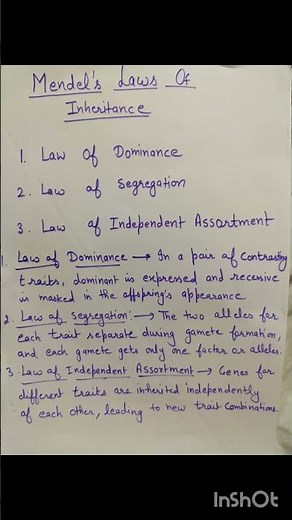 Mendel's Laws Of
Inheritance
1. Law Of Dominance
2. Law of Segregation
3. Law of Independent Assortment
1. Law of Dominance → In a pair of Contrasting
traits, dominant is expressed and recessive
is masked in the offspring's appearance
2. Law of Segregation:→ The two alleles for
each trait separate during gamete formation,
and each gamete gets only one factor or alleles.
3. Law of Independent Assortment → Genes for
different traits are inherited independently
of each other, leading to new trait Combinations.
InShOt